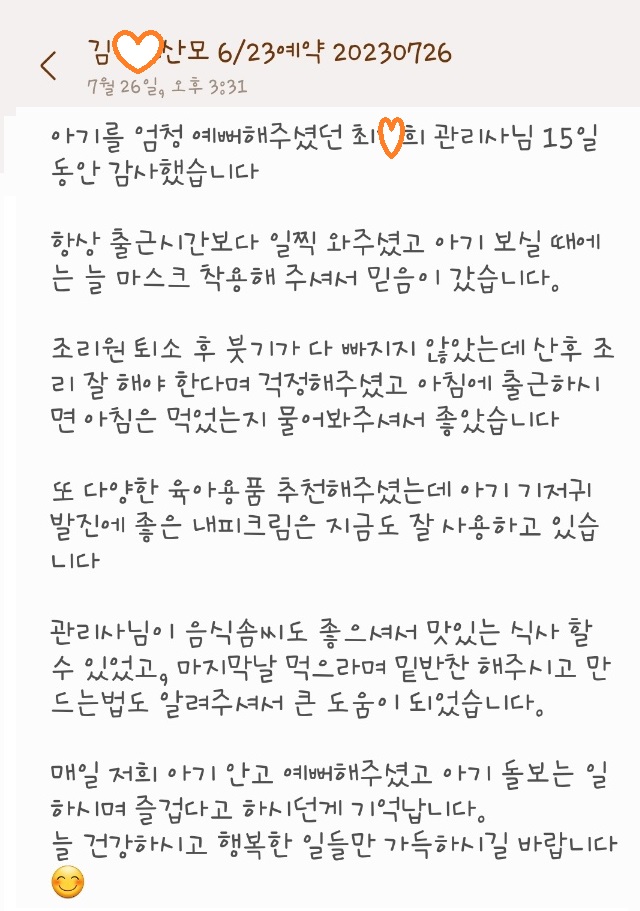 김🧡산모 6/23예약 20230726
7월 26일, 오후 3:31
아기를 엄청 예뻐해주셨던 최🧡희 관리사님 15일
동안 감사했습니다
항상 출근시간보다 일찍 와주셨고 아기 보실 때에
는 늘 마스크 착용해 주셔서 믿음이 갔습니다.
조리원 퇴소 후 붓기가 다 빠지지 않았는데 산후 조
리 잘 해야 한다며 걱정해주셨고 아침에 출근하시
면 아침은 먹었는지 물어봐주셔서 좋았습니다
또 다양한 육아용품 추천해주셨는데 아기 기저귀
발진에 좋은 내피크림은 지금도 잘 사용하고 있습
니다
관리사님이 음식솜씨도 좋으셔서 맛있는 식사 할
수 있었고, 마지막날 먹으라며 밑반찬 해주시고 만
드는법도 알려주셔서 큰 도움이 되었습니다.
매일 저희 아기 안고 예뻐해주셨고 아기 돌보는 일
하시며 즐겁다고 하시던게 기억납니다.
늘 건강하시고 행복한 일들만 가득하시길 바랍니다
😊